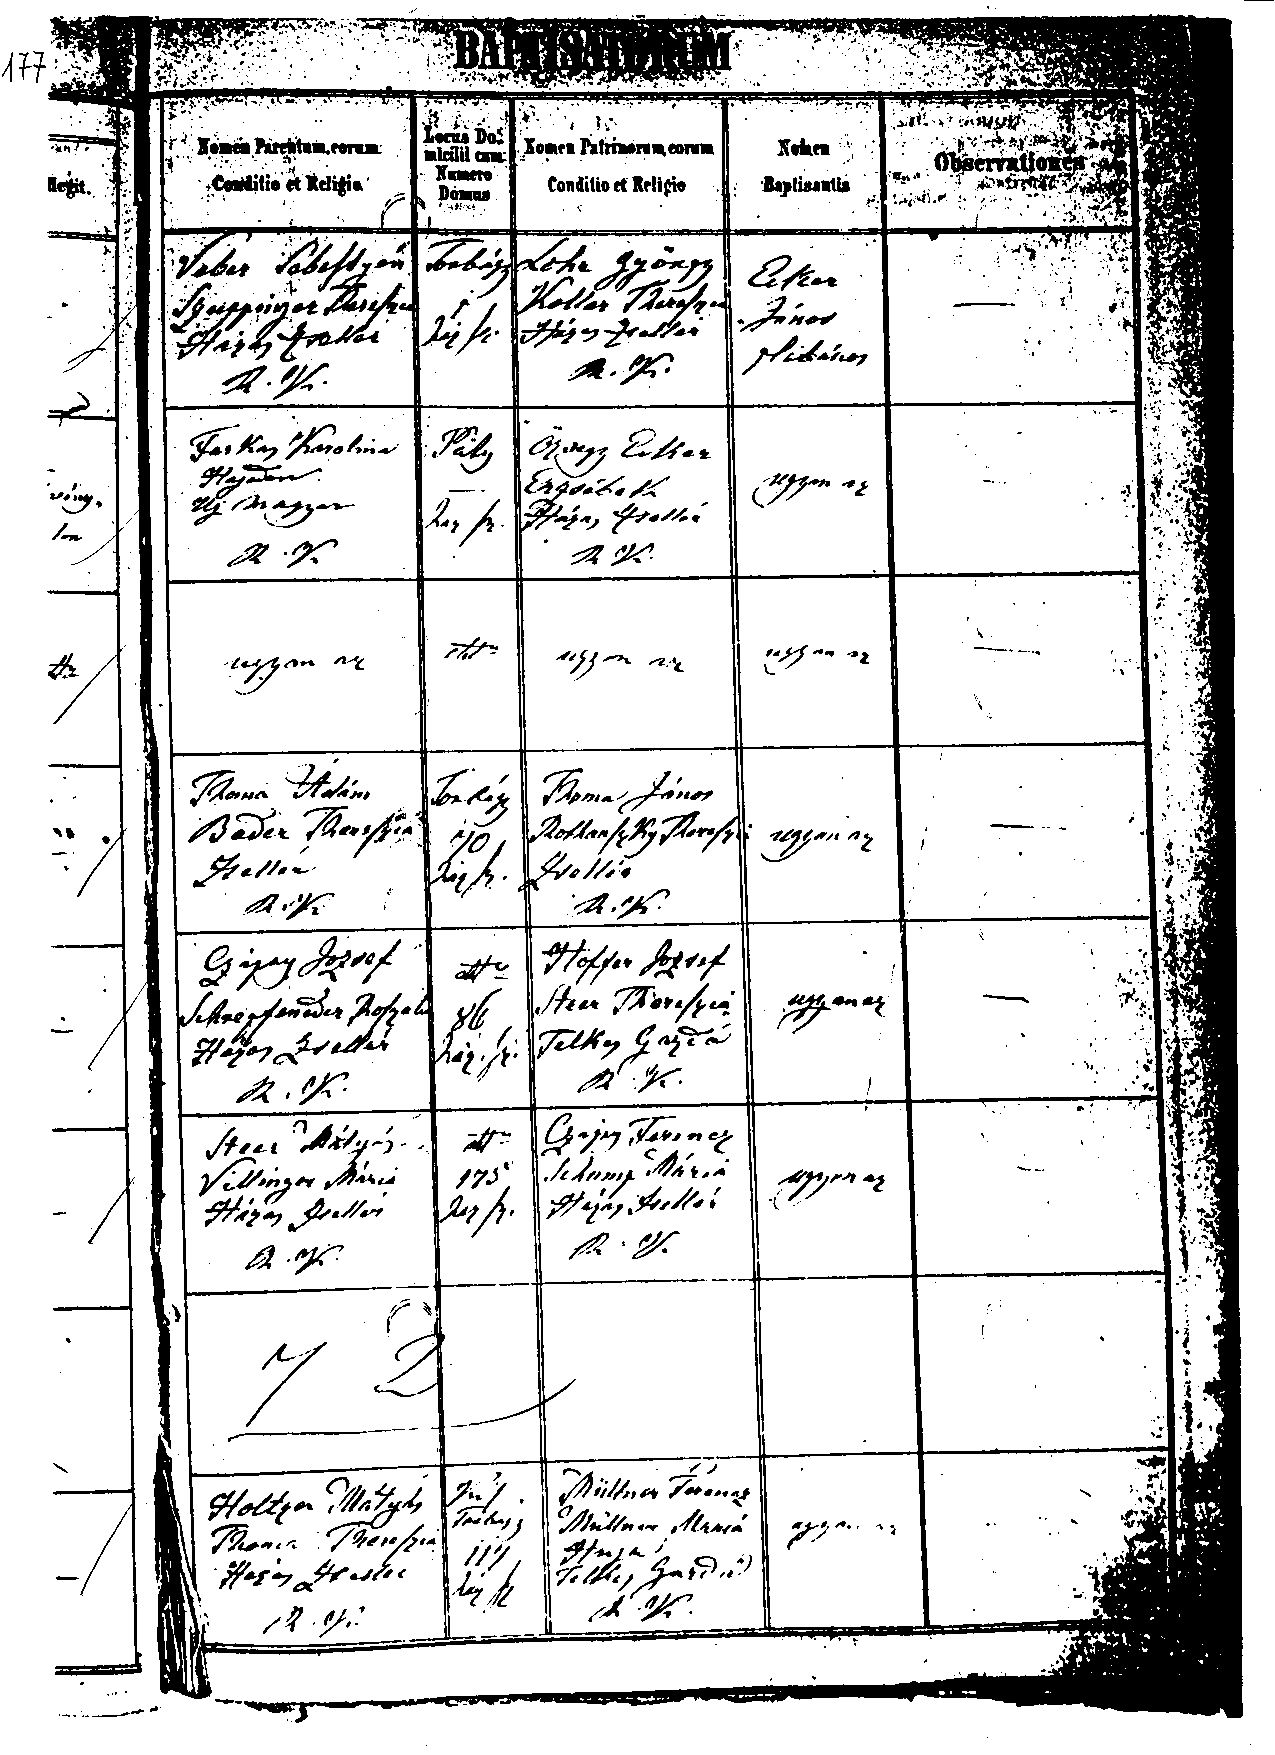 177
BAPTISATORUM
Nomen Parentum, eorum
Conditio et Religio
Locus Do-
micilii cum
Numero
Domus
Nomen Patrinorum, eorum
Conditio et Religio
Nomen
Baptisantis
Observationes
legit.
Veber Sebestyén
Thereszia
Házas Zsellér
R. K.
Torbágy
Lohr György
Koller Thereszia
Házas Zsellér
R. K.
Ecker
János
Plébános
Farkas Karolina
Hajadon
Uj magyar
R. K.
Páty
Özvegy Ecker
Erzsébeth
Házas Zsellér
R. K.
ugyan az
ugyan az
dtto
ugyan az
ugyan az
Thoma Ádám
Bader Thereszia
Zsellér
R. K.
Torbágy
70
Thoma János
Thereszia
Zsellér
R. K.
ugyan az
Czájay József
Házas Zsellér
R. K.
dtto
86
Hoffer József
Steer Thereszia
Telkes Gazda
R. K.
ugyan az
Steer Mátyás
Villinger Mária
Házas Zsellér
R. K.
dtto
175
Czájay Ferencz
Schump Mária
Házas Zsellér
R. K.
ugyan az
72
Holtzer Mátyás
Thoma Thereszia
Házas Zsellér
R. K.
Torbágy
Müllner Ferencz
Müllner Mária
Telkes Gazda
R. K.
ugyan az